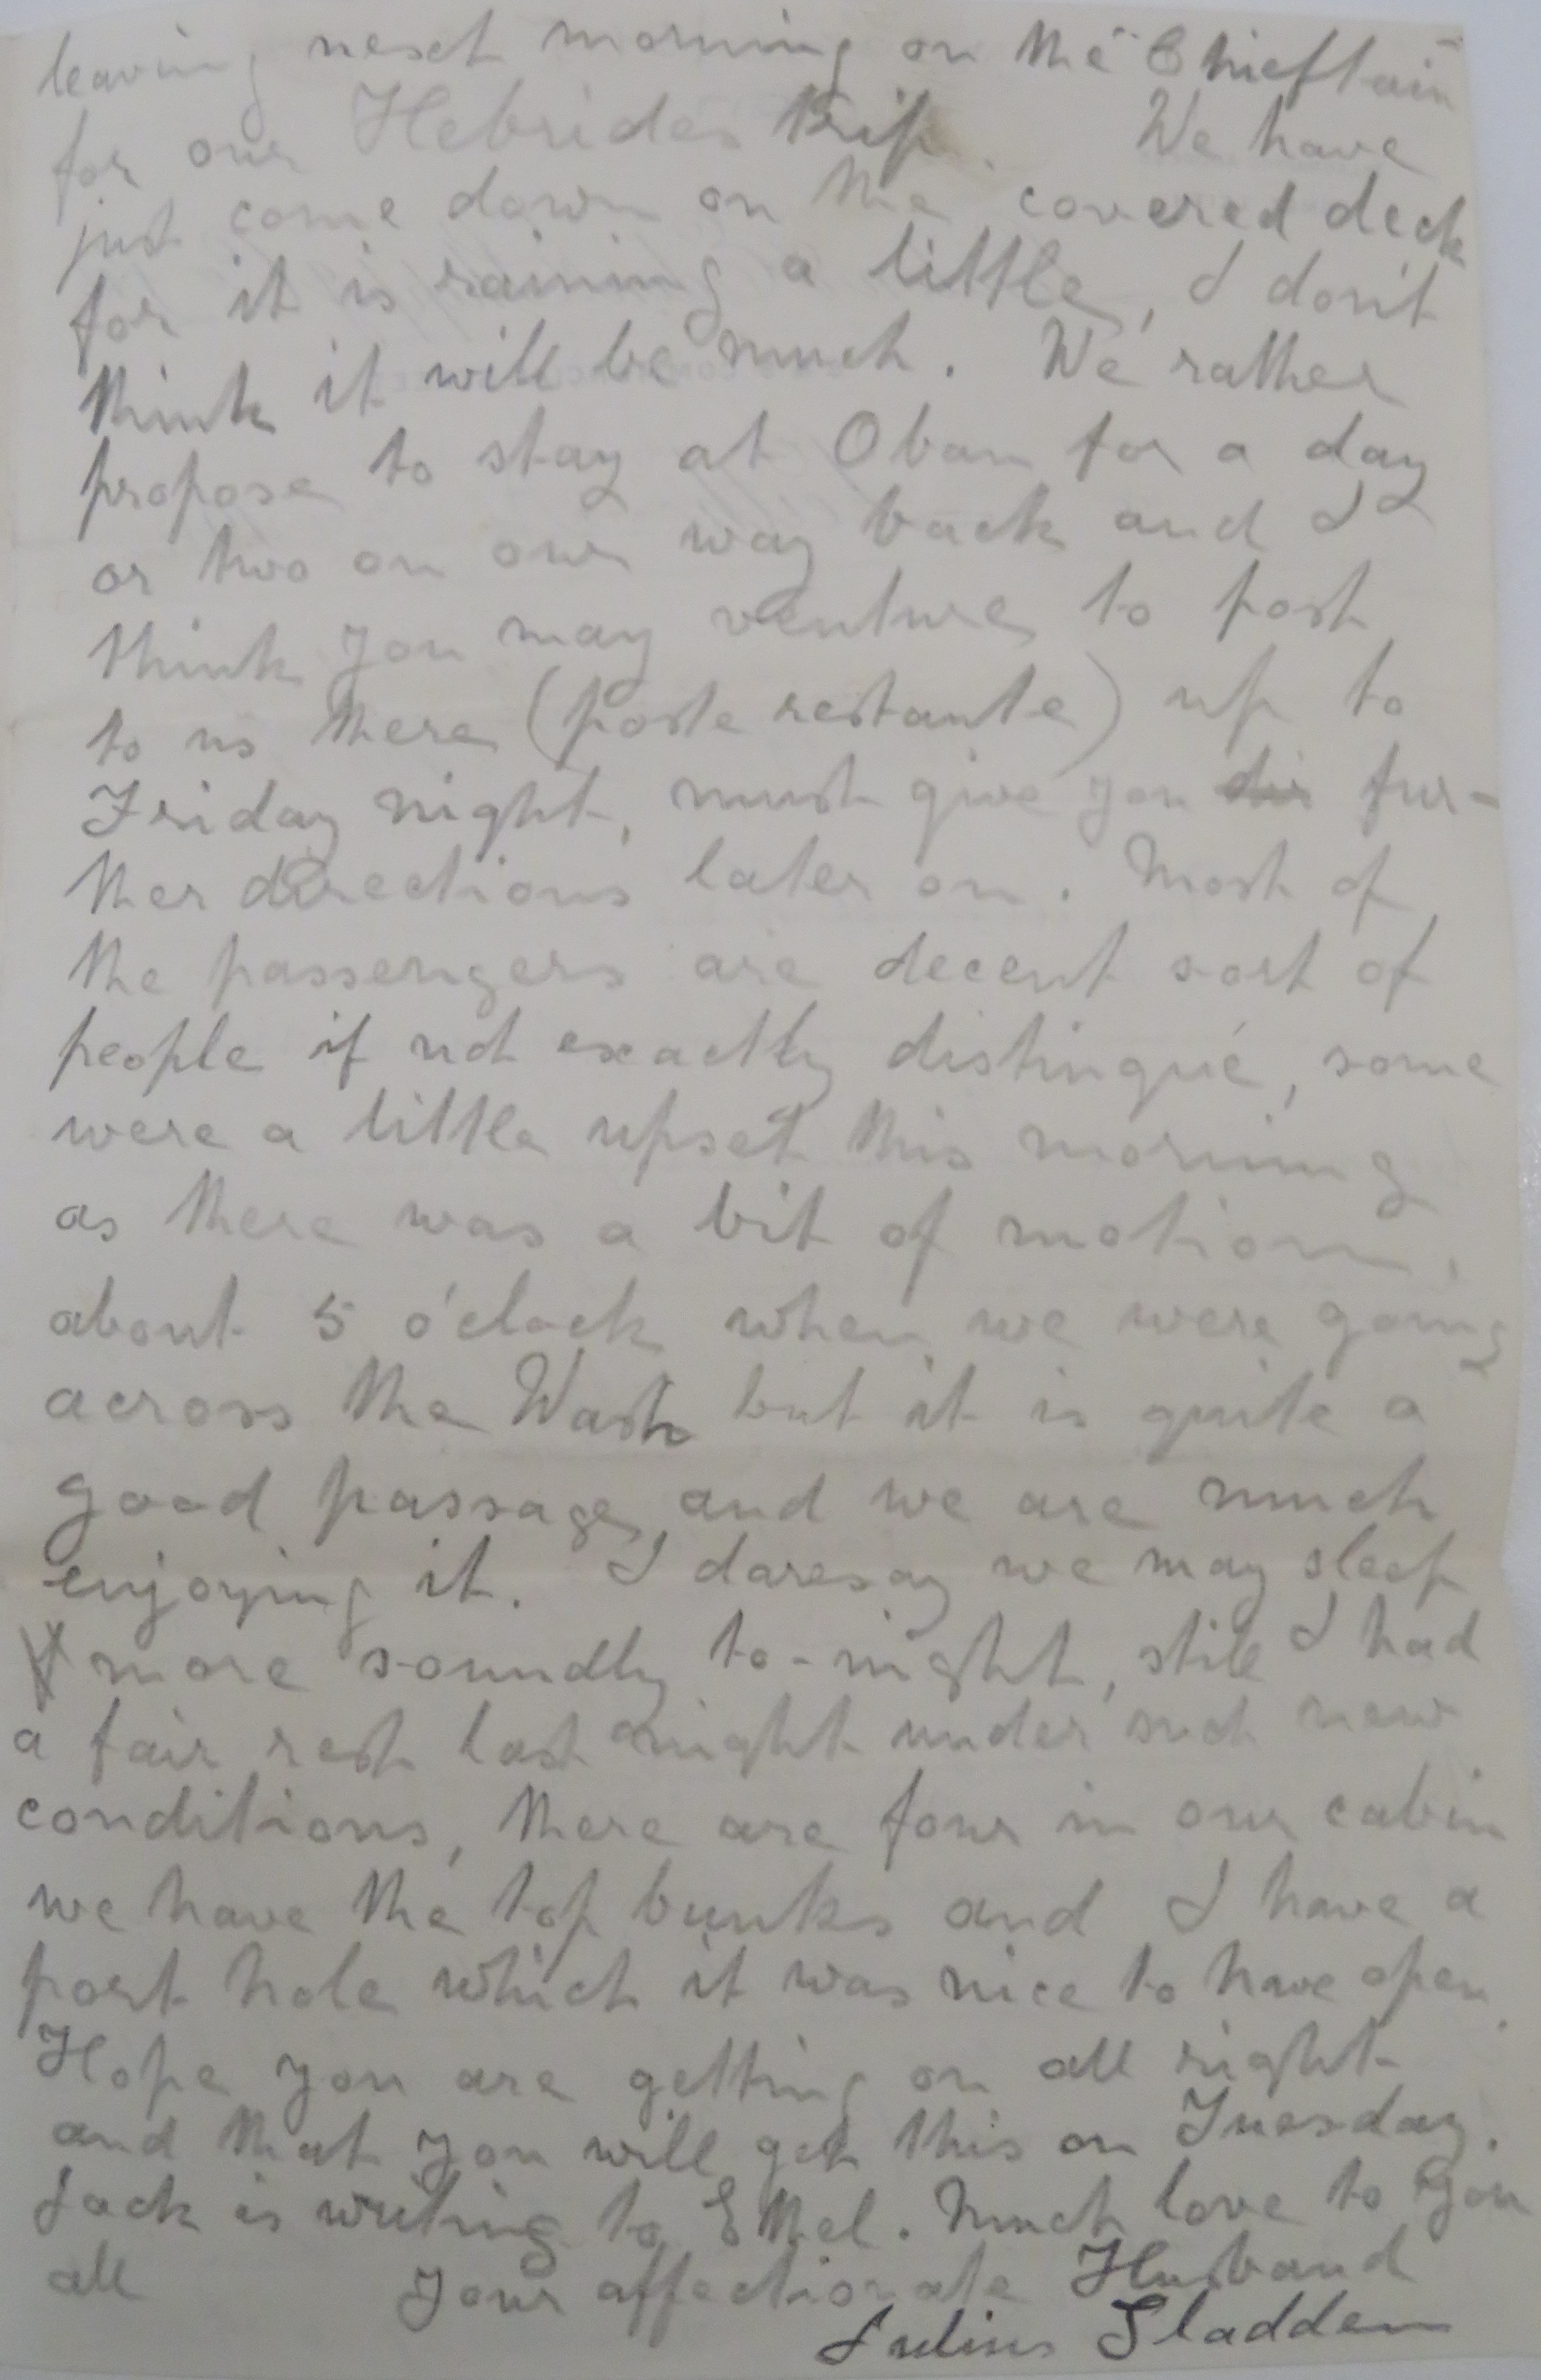 leaving next morning on the "Chieftain"
for our Hebrides trip. We have
just come down on the covered deck
for it is raining a little, I don't
think it will be much. We rather
propose to stay at Oban for a day
or two on our way back and I
think you may venture to post
to us there (poste restante) up to
Friday night, must give you dir fur-
ther directions later on. Most of
the passengers are decent sort of
people if not exactly distingué, some
were a little upset this morning
as there was a bit of motion,
about 5 o'clock when we were going
across the Wash but it is quite a
good passage and we are much
enjoying it. I daresay we may sleep
more soundly to-night, still I had
a fair rest last night under such new
conditions, there are four in our cabin
we have the top bunks and I have a
port hole which it was nice to have open.
Hope you are getting on all right
and that you will get this on Tuesday.
Jack is writing to Ethel. Much love to you
all Your affectionate Husband
Julius Sladden